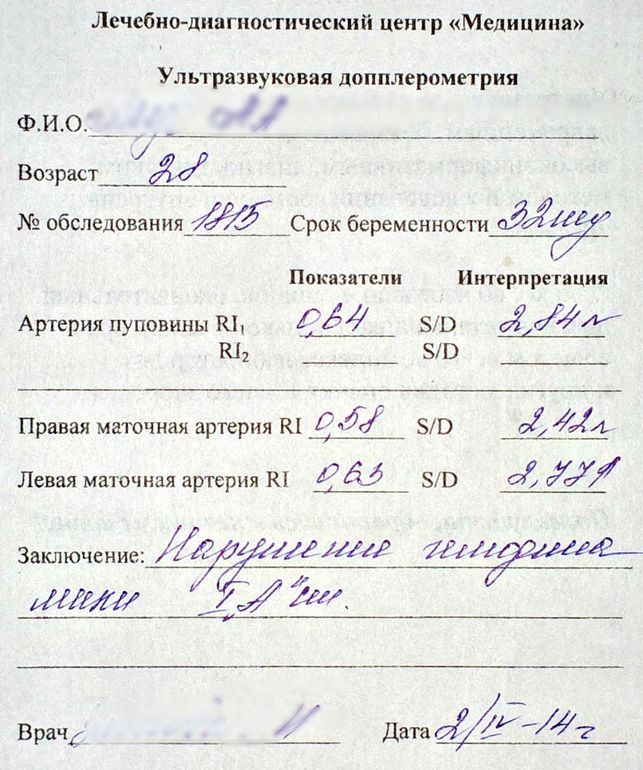 Лечебно-диагностический центр «Медицина»
Ультразвуковая допплерометрия
Ф.И.О.
Возраст 28
№ обследования 1815 Срок беременности 32 нед
Показатели Интерпретация
Артерия пуповины RI₁ 0,64 S/D 2,84 N
RI₂ S/D
Правая маточная артерия RI 0,58 S/D 2,42 N
Левая маточная артерия RI 0,63 S/D 2,77↑
Заключение: Нарушение гемодина
мики I "А" ст.
Врач Дата 2/IV-14 г